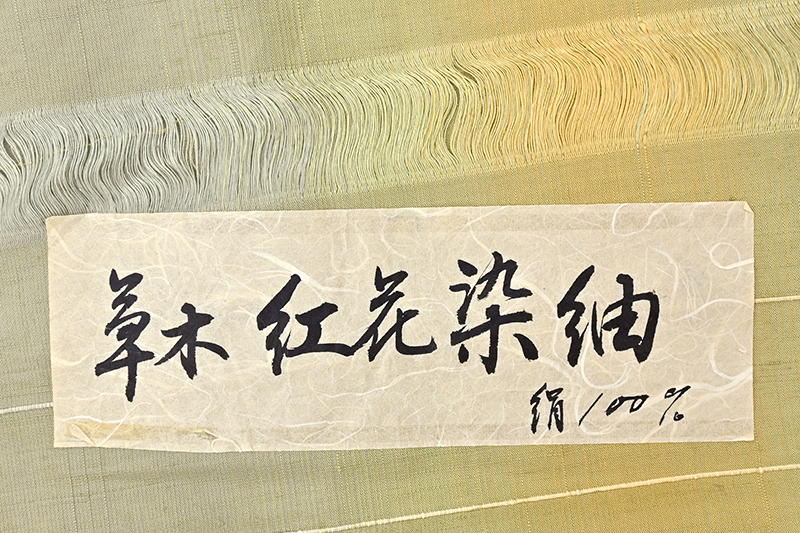 草木紅花染紬
絹100%